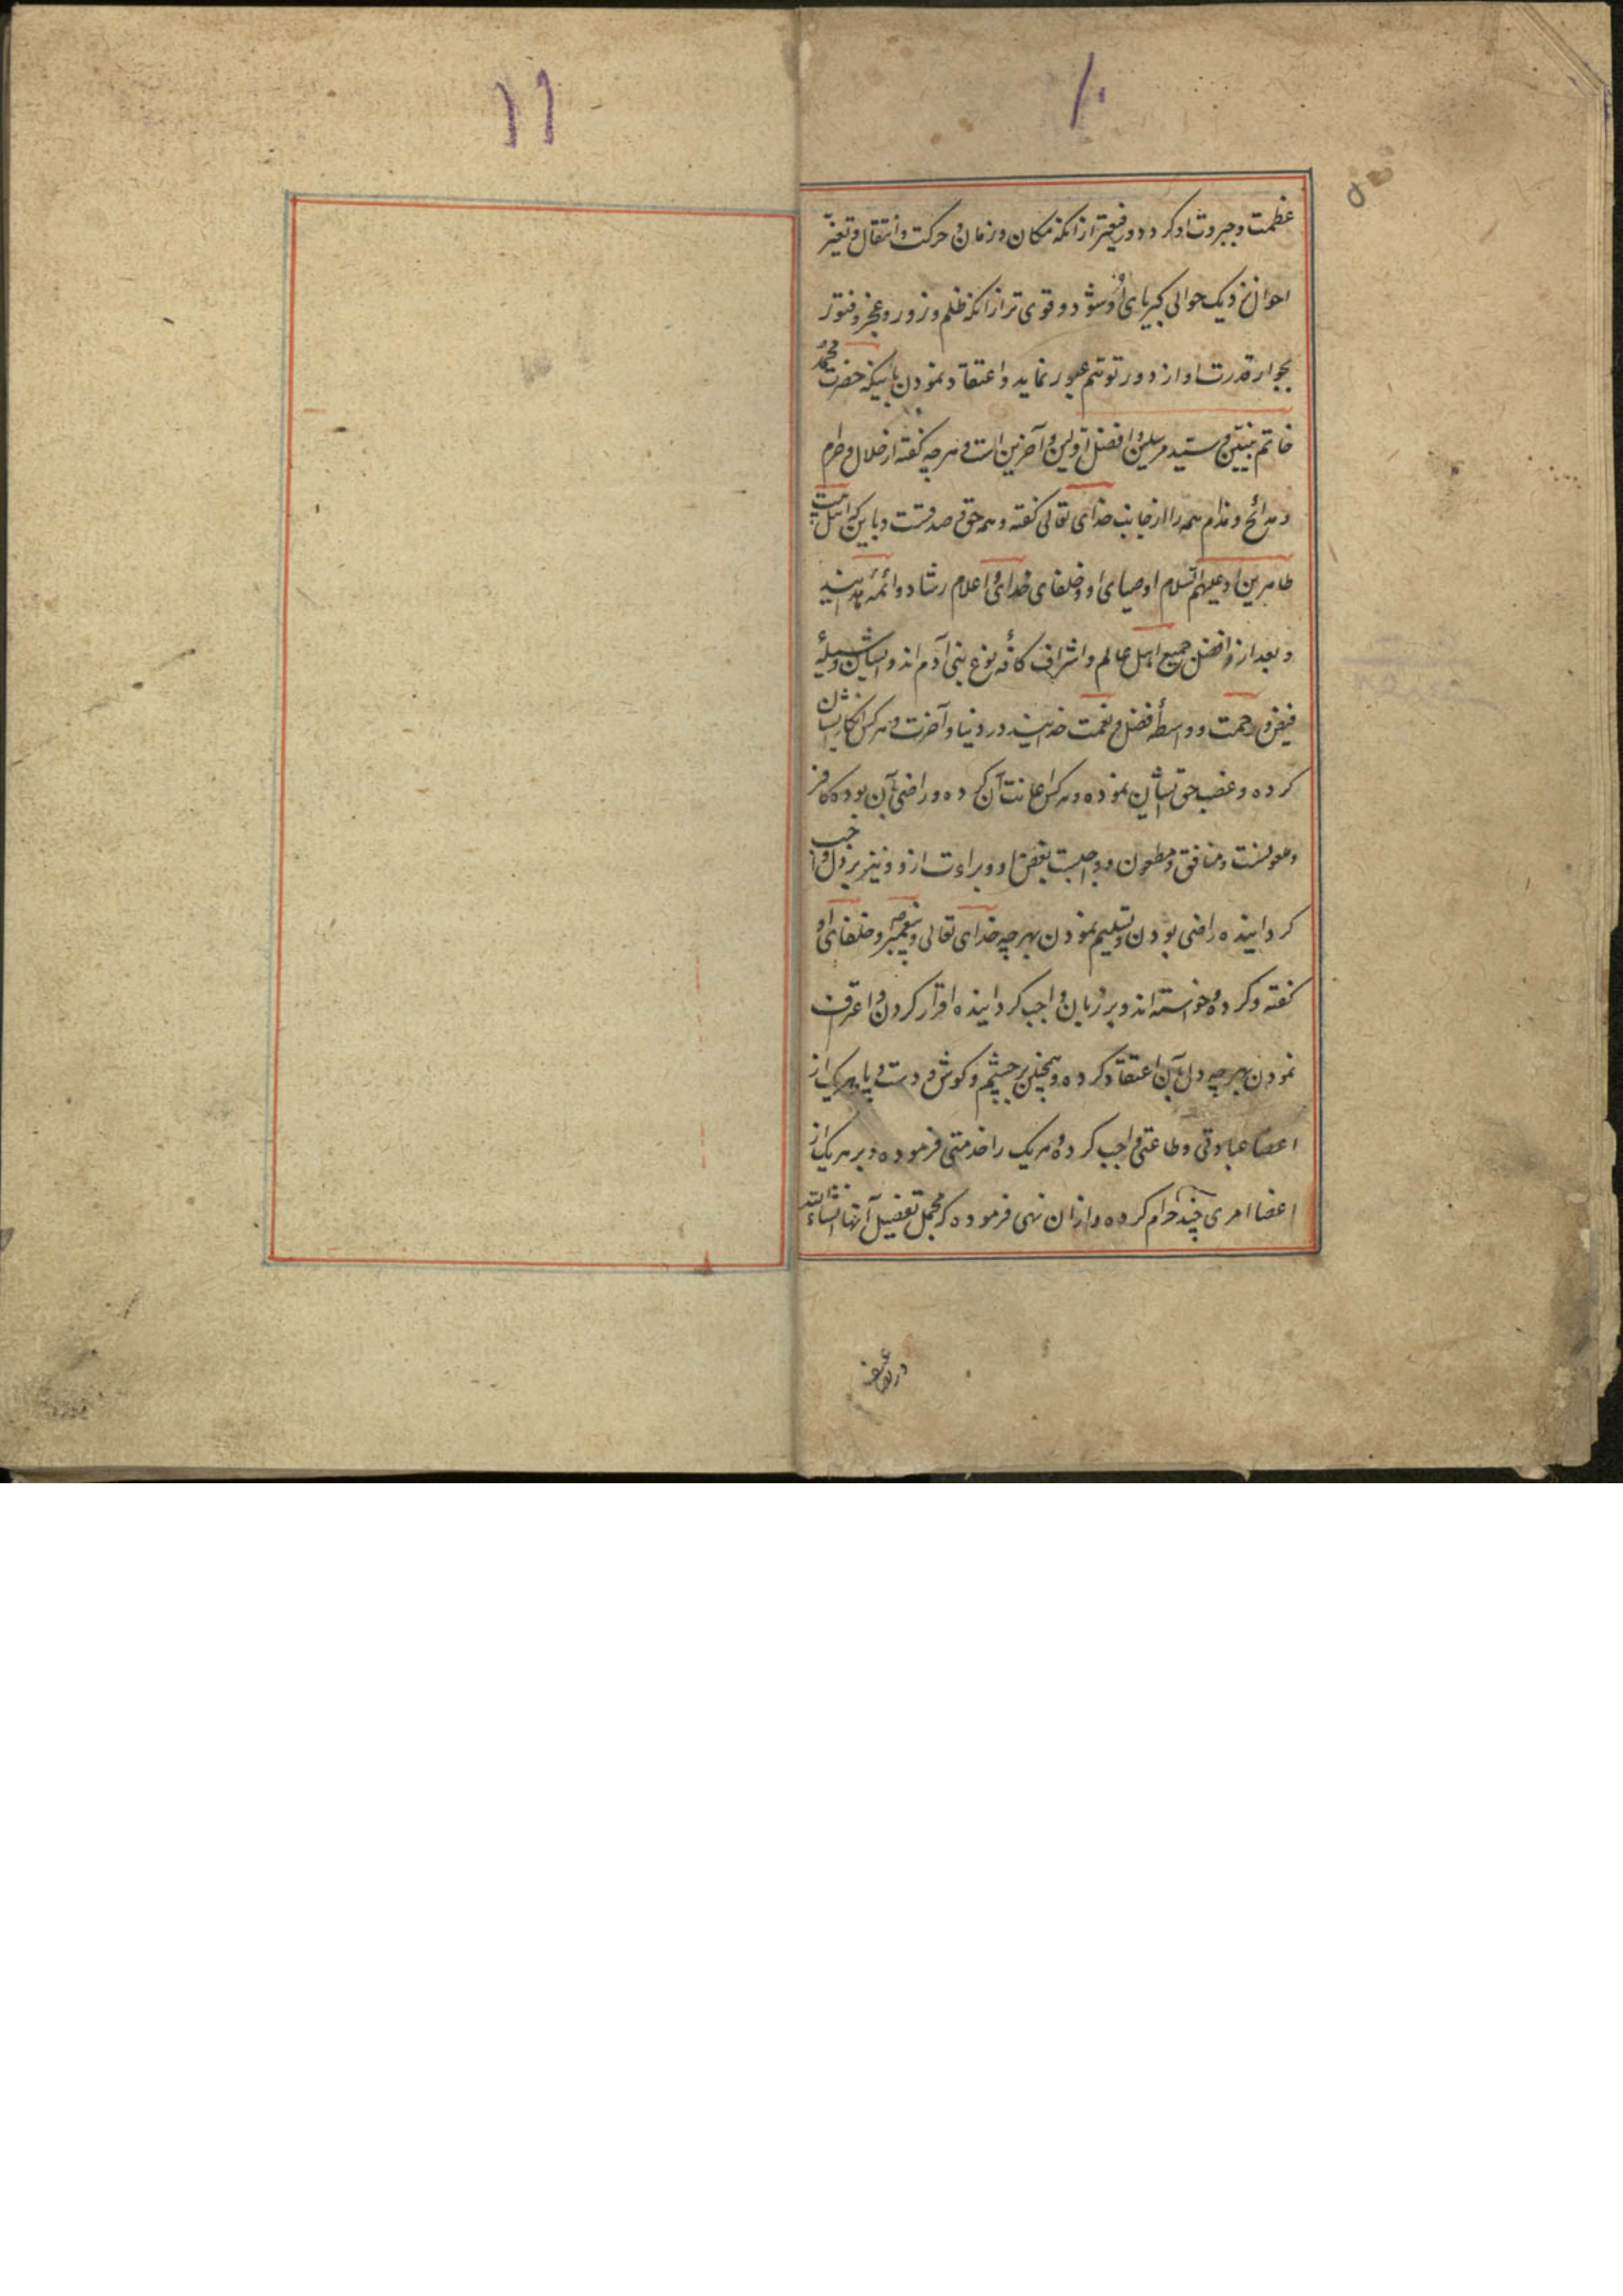 ۱۰
عظمت و جبروت او کردد و رفیعتر از انکه مکان و زمان و حرکت و انتقال و تغیر
احوال نزدیک حوالی کبریای او شود و قوی تر از انکه ظلم و زور و عجز و فتور
بجوار قدرت او از دور توهم عبور نماید و اعتقاد نمودن باینکه حضرت محمد
خاتم نبیین و سید مرسلین و افضل اولین و آخرین است و هرچه کفته از حلال و حرام
و مدائح و مذام همه را از جانب خدای تعالی کفته و همه حق و صدقست و باین که اهل بیت
طاهرین او علیهم السلام اوصیای او و خلفای خدای و اعلام رشاد و ائمهٔ
و بعد از و افضل جمیع اهل عالم و اشراف کافهٔ نوع بنی آدم اند و ایشان وسیلهٔ
فیض و رحمت و واسطهٔ فضل و نعمت خدایند در دنیا و آخرت و هر کس انکار ایشان
کرده و غصب حق ایشان نموده و هر کس اعانت آن کرده و راضی بآن بوده کافر
و ملعونست و منافق و مطعون و واجبست بغض او و براءت ازو و نیز بر دل واجب
کردانیده راضی بودن و تسلیم نمودن بهرچه خدای تعالی و پیغمبر و خلفای او
کفته و کرده و خواسته اند و بر زبان واجب کردانیده اقرار کردن و اعتراف
نمودن بهرچه دل بآن اعتقاد کرده و همچنین بر چشم و کوش و دست و پا و هریک از
اعضا عبادتی و طاعتی واجب کرده و هریک را خدمتی فرموده و بر هریک از
اعضا امری چند حرام کرده و از ان نهی فرموده که مجمل تفصیل آنها انشاءالله
۱۱